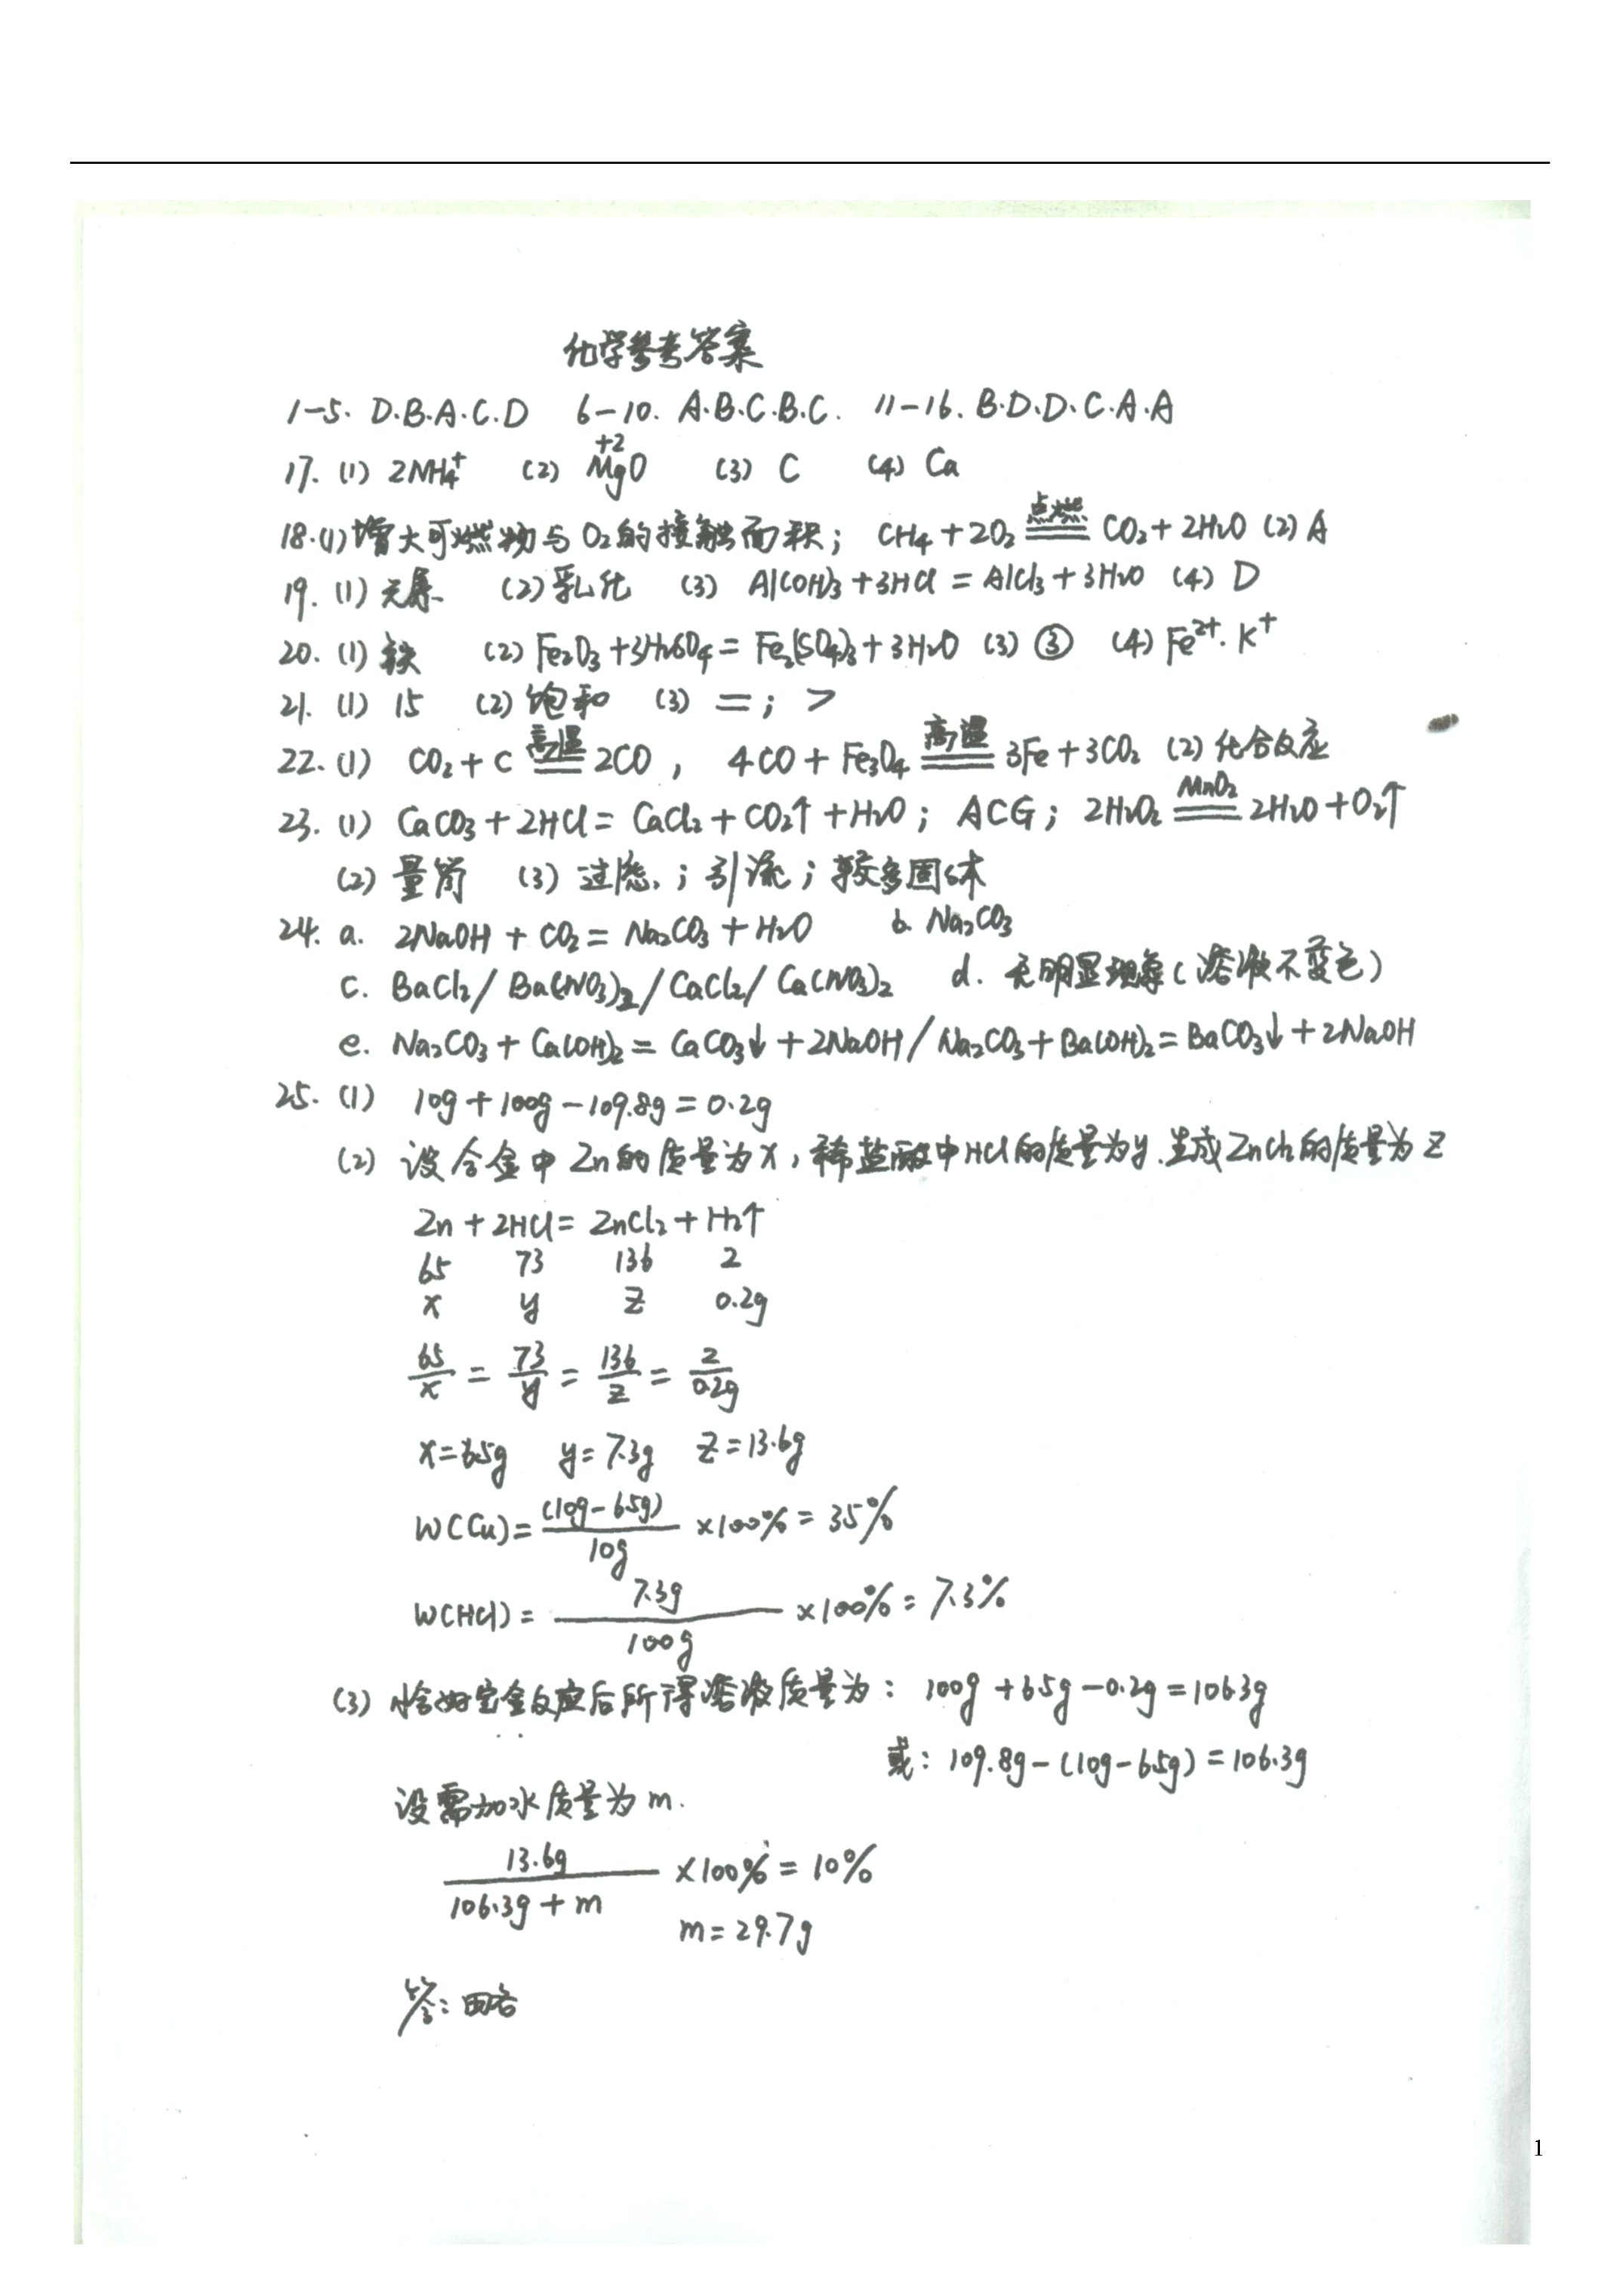 化学参考答案
1-5. D.B.A.C.D 6-10. A.B.C.B.C. 11-16. B.D.D.C.A.A
17. (1) 2NH₄⁺ (2) Mg(+2)O (3) C (4) Ca
18.(1)增大可燃物与O₂的接触面积; CH₄+2O₂ 点燃═ CO₂+2H₂O (2) A
19. (1) 元素 (2) 乳化 (3) Al(OH)₃+3HCl=AlCl₃+3H₂O (4) D
20. (1) 铁 (2) Fe₂O₃+3H₂SO₄=Fe₂(SO₄)₃+3H₂O (3) ③ (4) Fe²⁺. K⁺
21. (1) 15 (2) 饱和 (3) =; >
22. (1) CO₂+C 高温═ 2CO, 4CO+Fe₃O₄ 高温═ 3Fe+3CO₂ (2) 化合反应
23. (1) CaCO₃+2HCl=CaCl₂+CO₂↑+H₂O; ACG; 2H₂O₂ MnO₂═ 2H₂O+O₂↑
(2) 量筒 (3) 过滤; 引流; 较多固体
24. a. 2NaOH+CO₂=Na₂CO₃+H₂O b. Na₂CO₃
c. BaCl₂/Ba(NO₃)₂/CaCl₂/Ca(NO₃)₂ d. 无明显现象(溶液不变色)
e. Na₂CO₃+Ca(OH)₂=CaCO₃↓+2NaOH/Na₂CO₃+Ba(OH)₂=BaCO₃↓+2NaOH
25. (1) 10g+100g-109.8g=0.2g
(2) 设合金中Zn的质量为x,稀盐酸中HCl的质量为y.生成ZnCl₂的质量为z
Zn+2HCl=ZnCl₂+H₂↑
65 73 136 2
x y z 0.2g
65/x = 73/y = 136/z = 2/0.2g
x=6.5g y=7.3g z=13.6g
W(Cu)=(10g-6.5g)/10g ×100%=35%
W(HCl)=7.3g/100g ×100%=7.3%
(3) 恰好完全反应后所得溶液质量为: 100g+6.5g-0.2g=106.3g
或: 109.8g-(10g-6.5g)=106.3g
设需加水质量为m.
13.6g/(106.3g+m) ×100%=10%
m=29.7g
答: 略
1